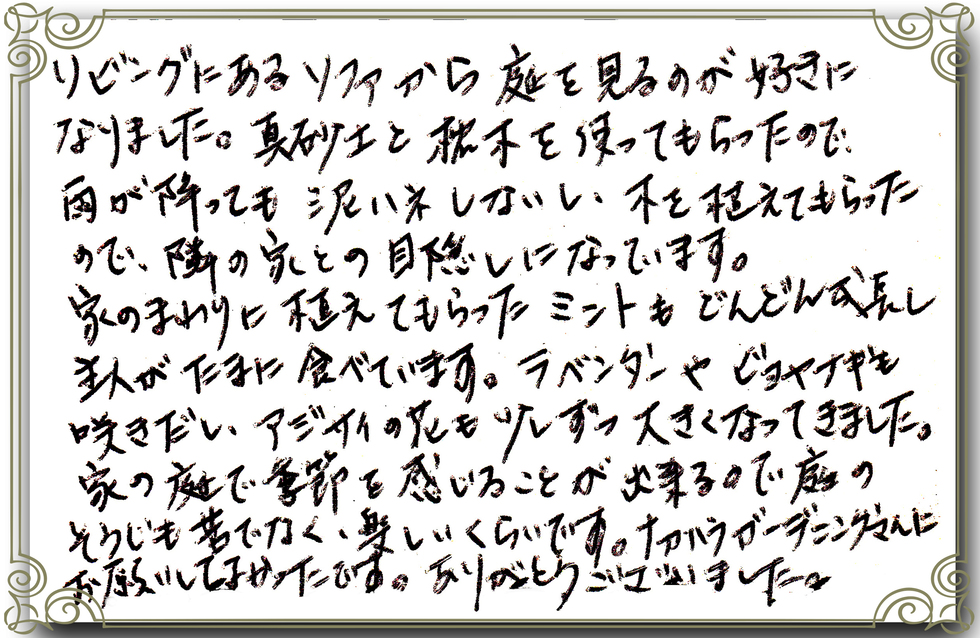 リビングにあるソファから庭を見るのが好きに
なりました。真砂土と枕木を使ってもらったので、
雨が降っても泥ハネしないし、木を植えてもらった
ので、隣の家との目隠しになっています。
家のまわりに植えてもらったミントもどんどん成長し
主人がたまに食べています。ラベンダーやビヨヤナギも
咲きだし、アジサイの花も少しずつ大きくなってきました。
家の庭で季節を感じることが出来るので庭の
そうじも苦でなく、楽しいくらいです。ナカバラガーデニングさんに
お願いしてよかったです。ありがとうございました。